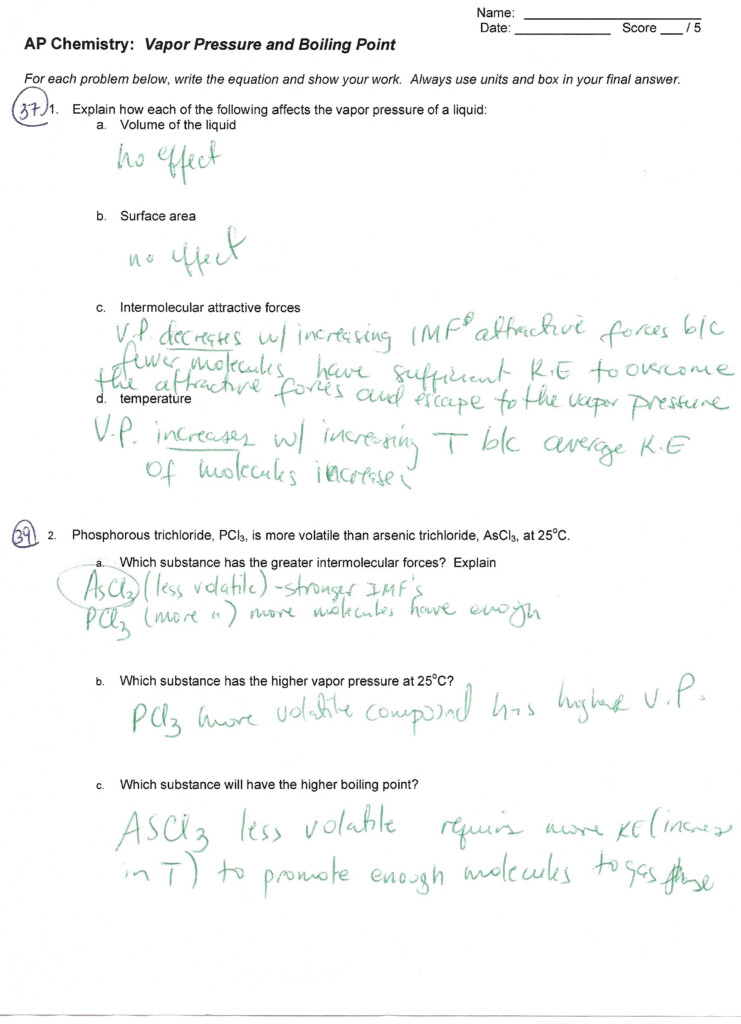 Name: ____________________
Date: ____________ Score ___ / 5
AP Chemistry: Vapor Pressure and Boiling Point
For each problem below, write the equation and show your work. Always use units and box in your final answer.
37 1. Explain how each of the following affects the vapor pressure of a liquid:
a. Volume of the liquid
no effect
b. Surface area
no effect
c. Intermolecular attractive forces
V.P. decreases w/ increasing IMF attractive forces b/c
fewer molecules have sufficient K.E to overcome
the attractive forces and escape to the vapor pressure
d. temperature
V.P. increases w/ increasing T b/c average K.E
of molecules increases
39 2. Phosphorous trichloride, PCl₃, is more volatile than arsenic trichloride, AsCl₃, at 25°C.
a. Which substance has the greater intermolecular forces? Explain
AsCl₃ (less volatile) - stronger IMF's
PCl₃ (more ") more molecules have enough
b. Which substance has the higher vapor pressure at 25°C?
PCl₃ more volatile compound has higher V.P.
c. Which substance will have the higher boiling point?
ASCl₃ less volatile requires more KE (increase
in T) to promote enough molecules to gas phase